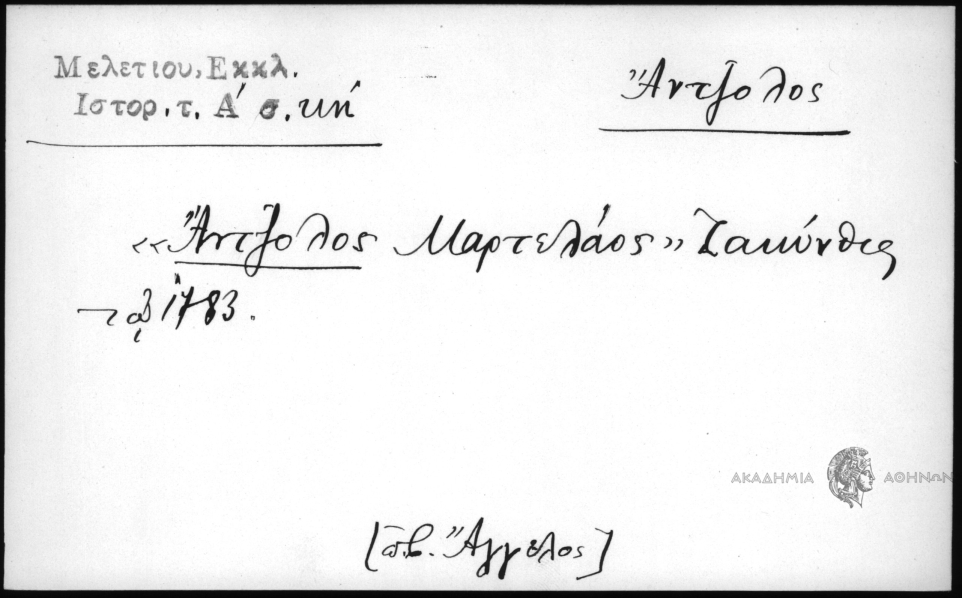 Μελετίου, Εκκλ.
Ιστορ. τ. Α' σ. κή
Ἄντζολος
«Ἄντζολος Μαρτελάος» Ζακύνθιος
τῷ 1783.
ΑΚΑΔΗΜΙΑ ΑΘΗΝΩΝ
[πβ. Ἄγγελος]